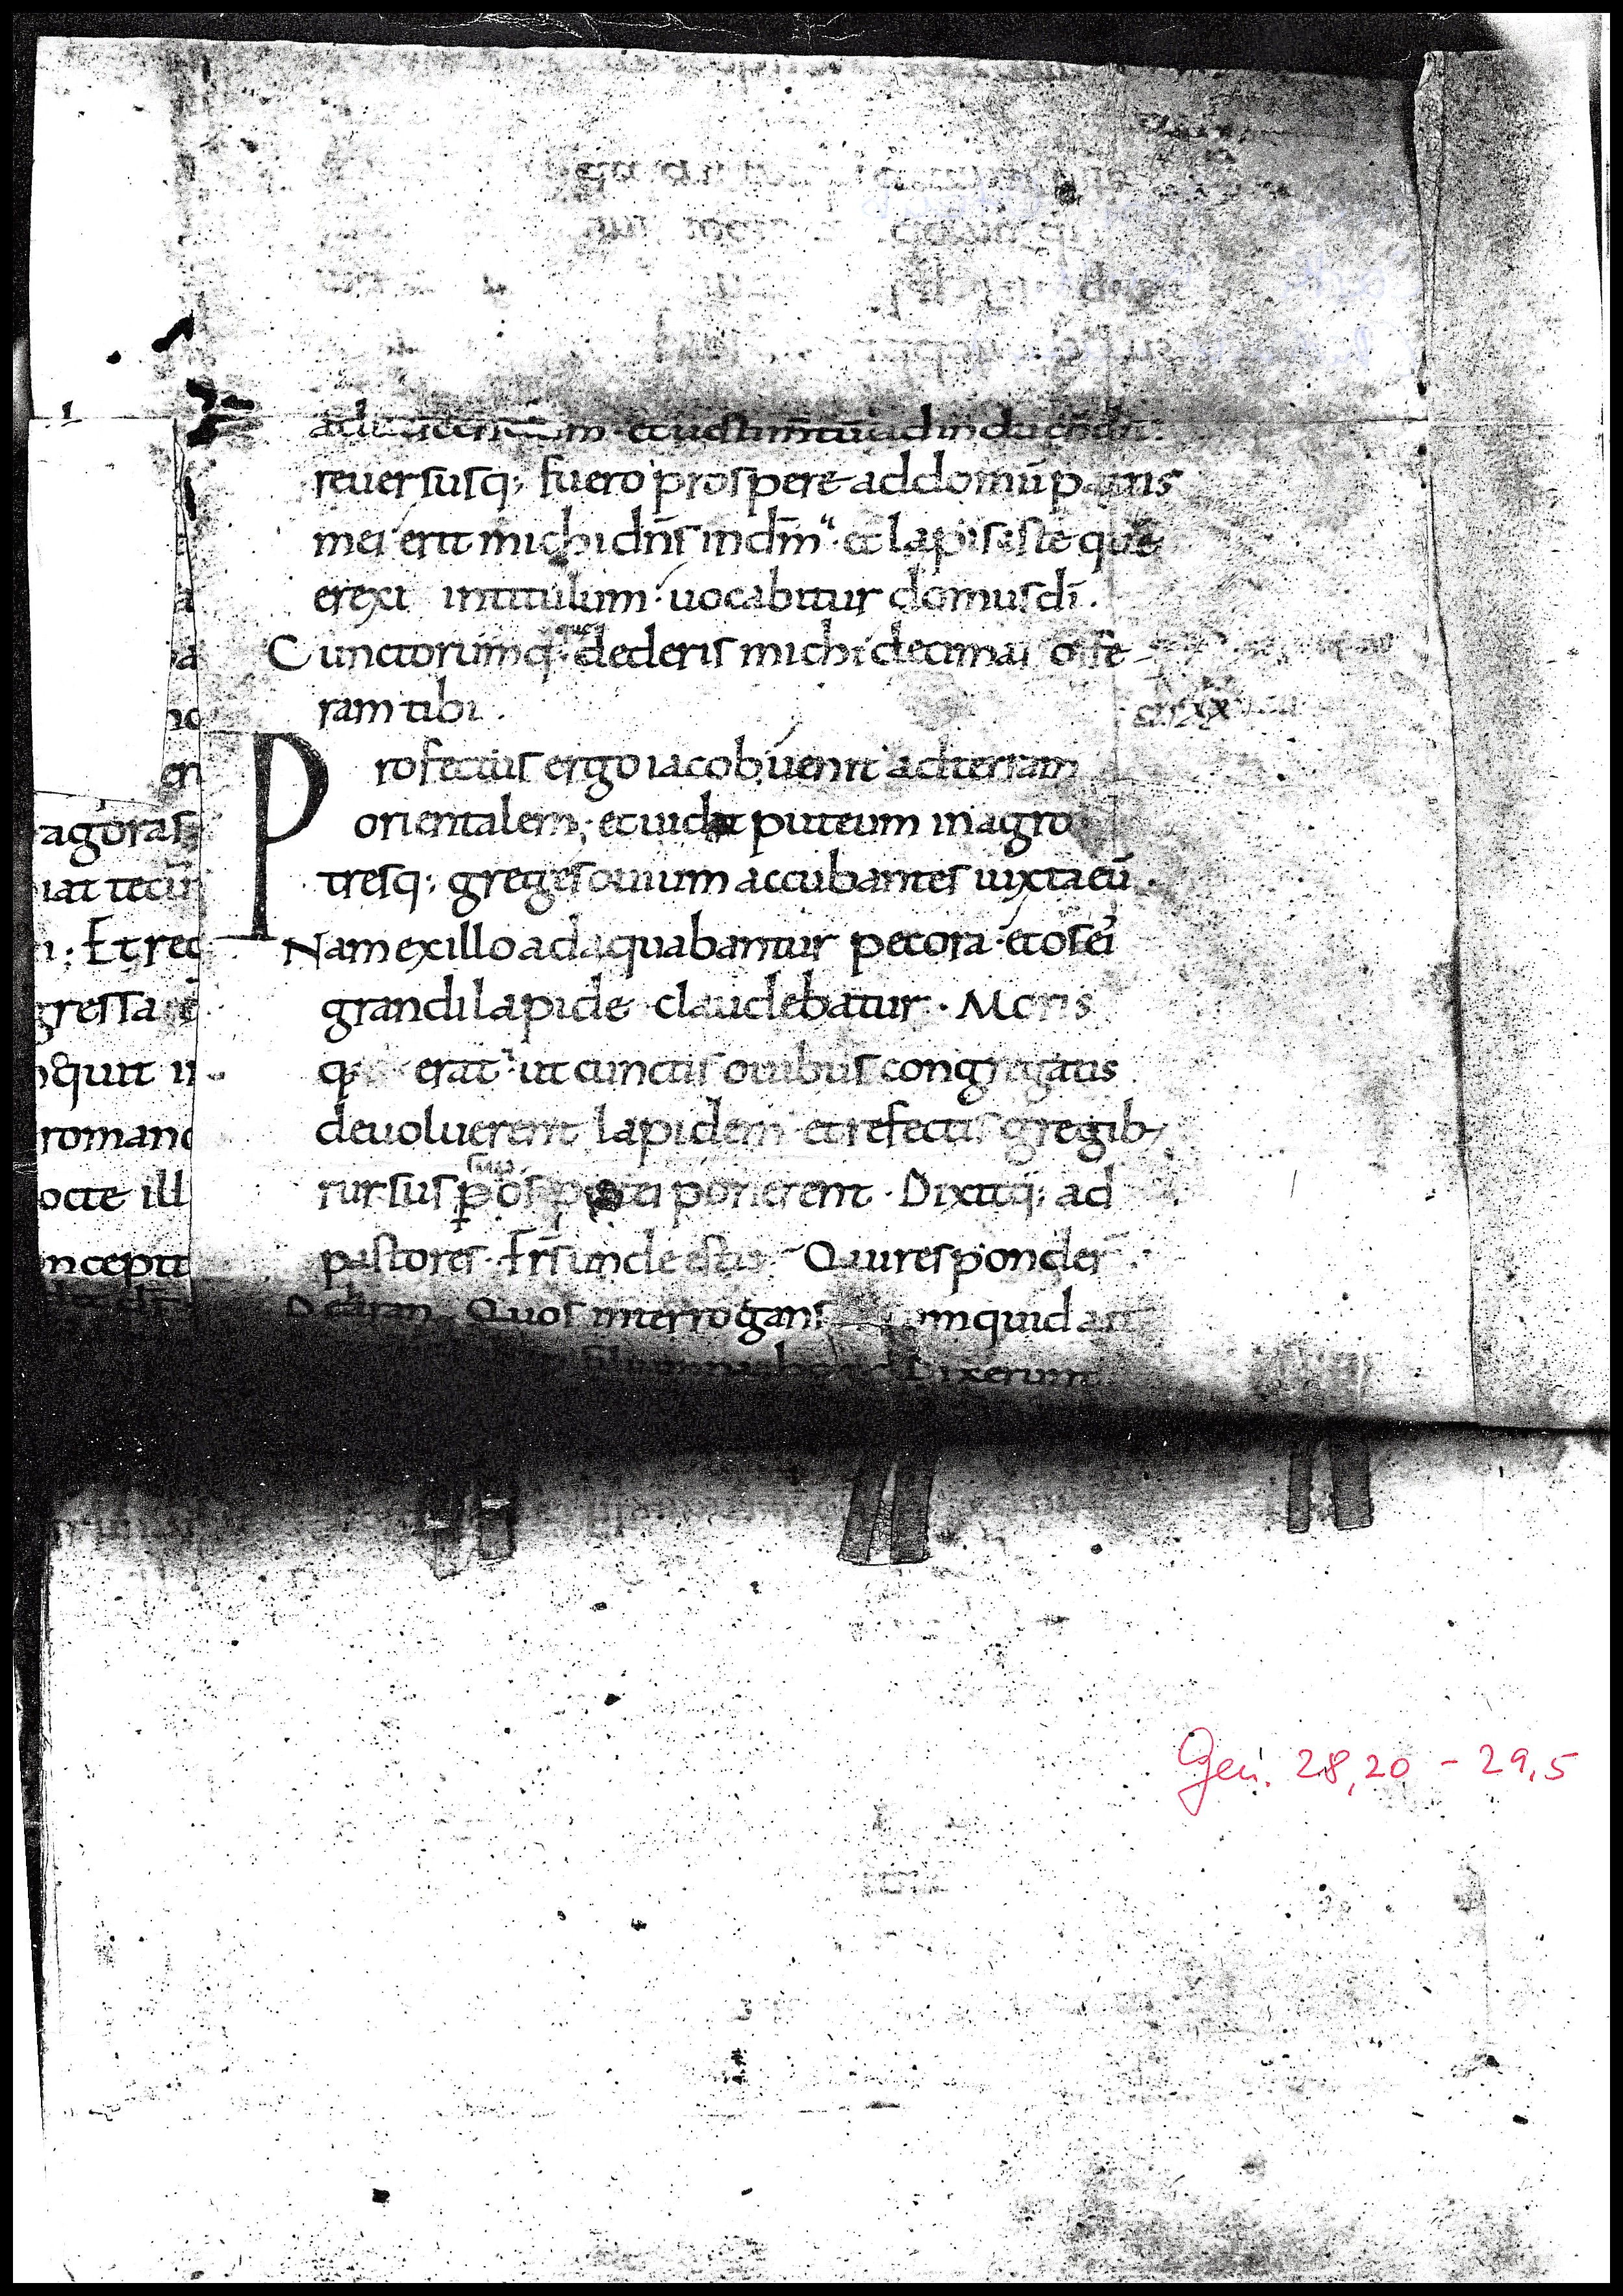 et uestim̄tū ad induendū.
reuersusq; fuero prospere ad domū patris
mei erit michi dn̄s in dm̄ et lapis iste quē
erexi in titulum uocabitur domus dī.
Cunctorumq; que dederis michi decimas offe
ram tibi.
Profectus ergo iacob uenit ad terram
orientalem; et uidit puteum in agro
tresq; greges ouium accubantes iuxta eū.
Nam ex illo adaquabantur pecora et os ei
grandi lapide claudebatur. Moris
q; erat ut cunctis ouibus congregatis
deuoluerent lapidem et refectis gregib;
rursus sup os putei ponerent. Dixitq; ad
pastores. Fr̄s unde estis Qui responder̄.
De aran. Quos interrogans numquid ait
Dixerunt
agoras
iat tecū
i; Et rec
gressa
quit
romano
octe ill
ncepit
Gen. 28,20 - 29,5